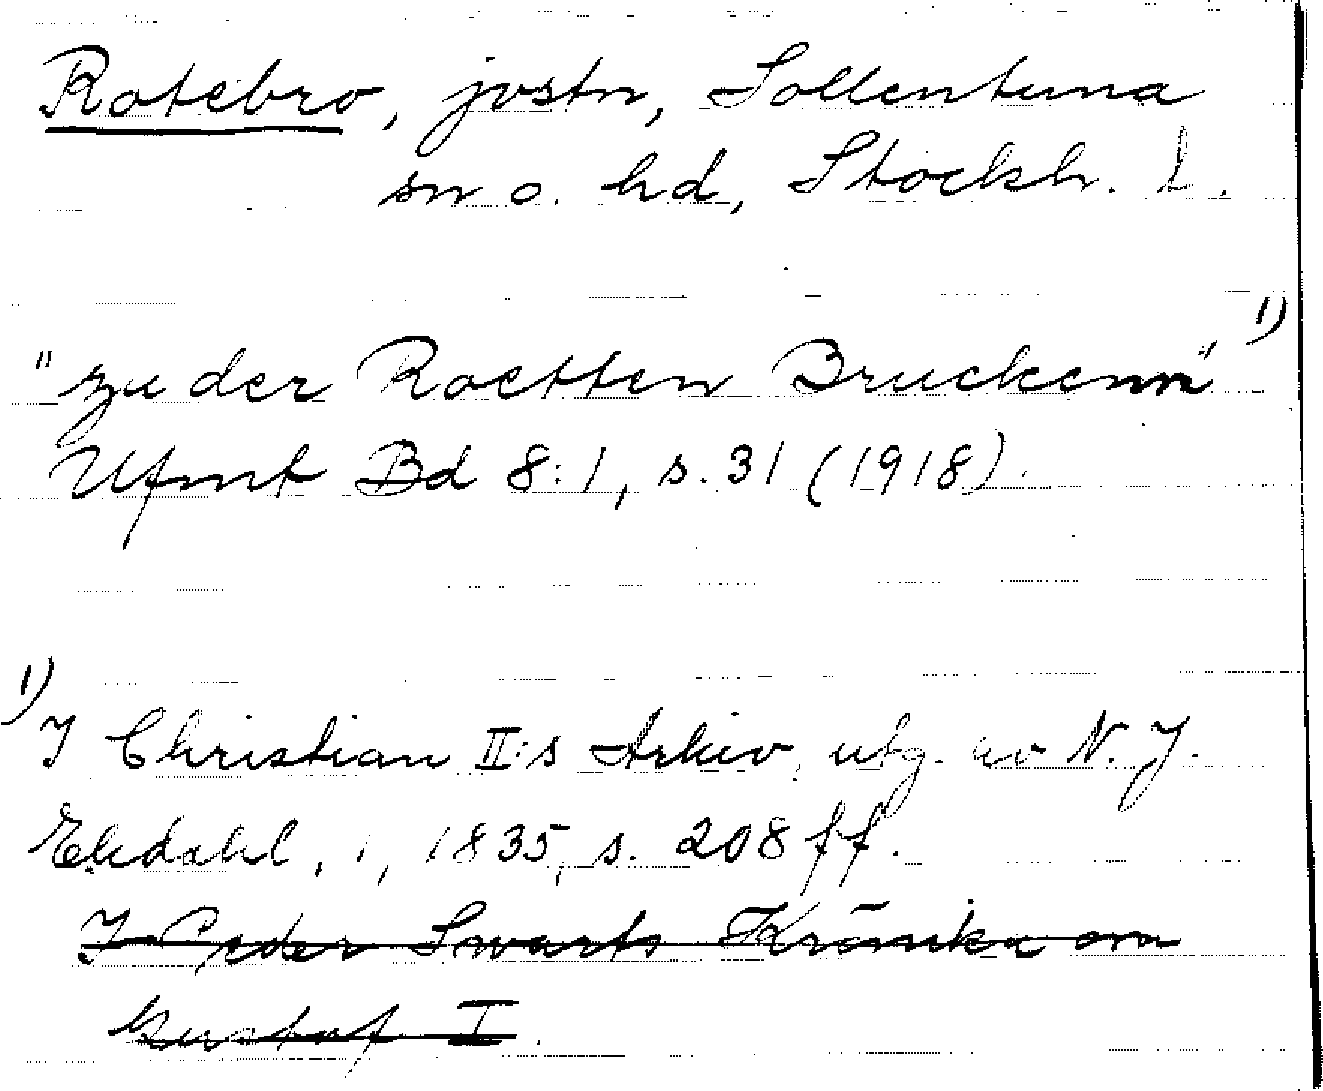 Rotebro, jvstn, Sollentuna
sn o. hd, Stockh. l.
"zu der Roetten Bruckenn" 1)
Ufmt Bd 8:1, s. 31 (1918).
1) I Christian II:s Arkiv, utg. av N. J.
Ekdahl, 1, 1835, s. 208 ff.
I Peder Swarts Krönika om
Gustaf I.